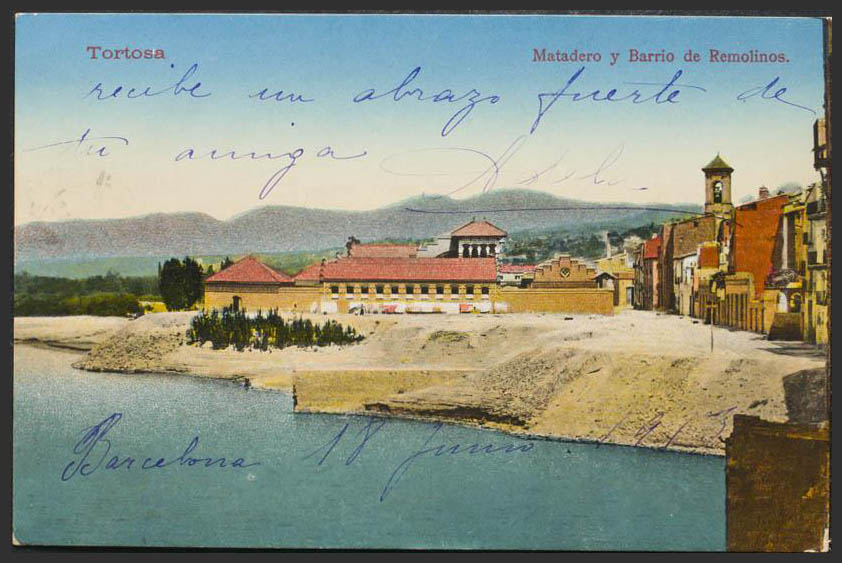 Tortosa
Matadero y Barrio de Remolinos.
recibe un abrazo fuerte de
tu amiga
Barcelona 18 Junio 1913